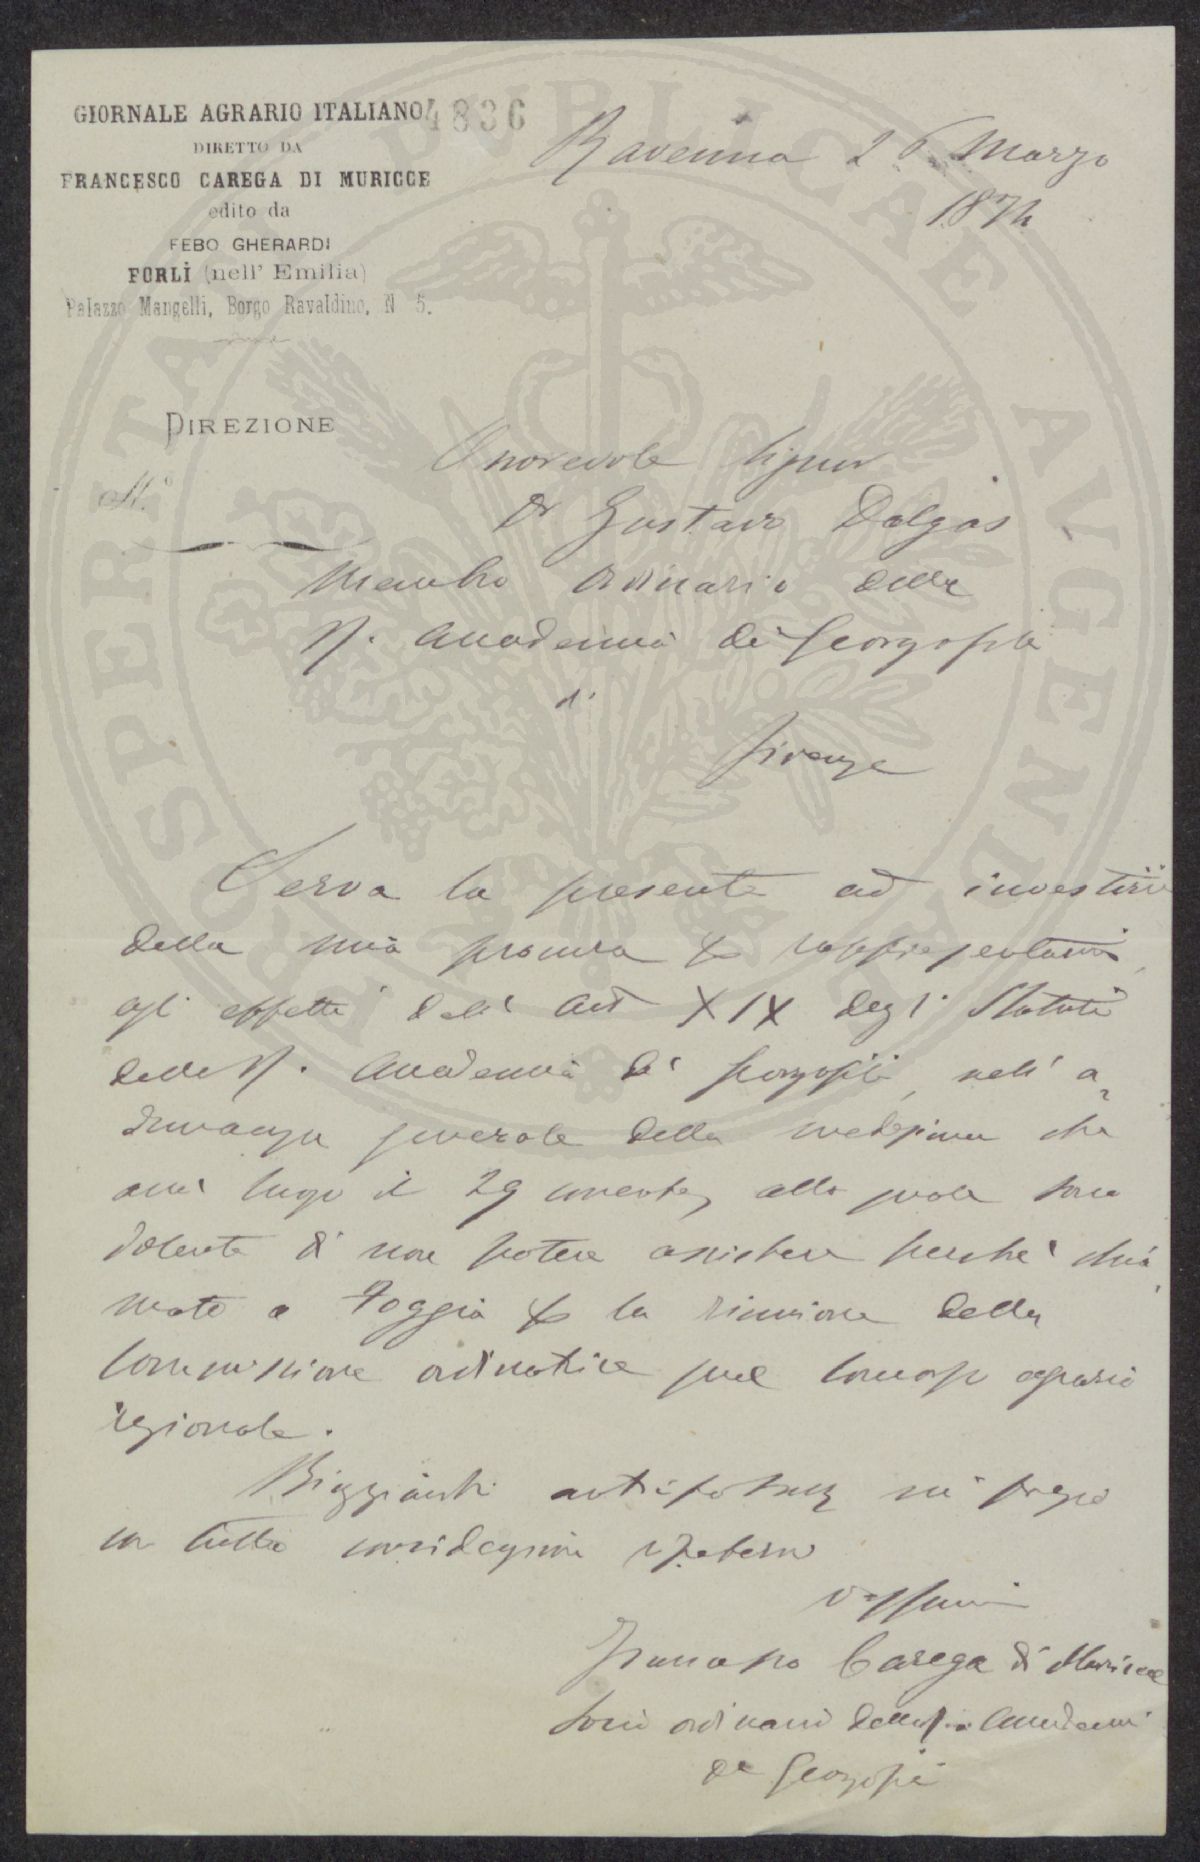 GIORNALE AGRARIO ITALIANO
4836
DIRETTO DA
FRANCESCO CAREGA DI MURICCE
edito da
FEBO GHERARDI
FORLÌ (nell' Emilia)
Palazzo Mangelli, Borgo Ravaldino, N 5.
DIREZIONE
N.°
Ravenna 26 Marzo
1874
Onorevole Signor
Dr Gustavo Dalgas
Membro Ordinario della
R. Accademia dei Georgofili
di
Firenze
Serva la presente ad investirLa
della mia procura per rappresentarmi,
agli effetti dell' Art XIX degli Statuti
della R. Accademia dei Georgofili, nell' a
dunanza generale della medesima che
avrà luogo il 29 corrente, alla quale sono
dolente di non potere assistere perchè chia
mato a Foggia per la riunione della
Commissione ordinatrice pel Concorso agrario
regionale.
Ringrazianti anticipatamente mi pregio
con tutta considerazione
Francesco Carega di Muricce
Socio ordinario della R. Accademia
dei Georgofili
PROSPERITATI PVBLICAE AVGENDAE